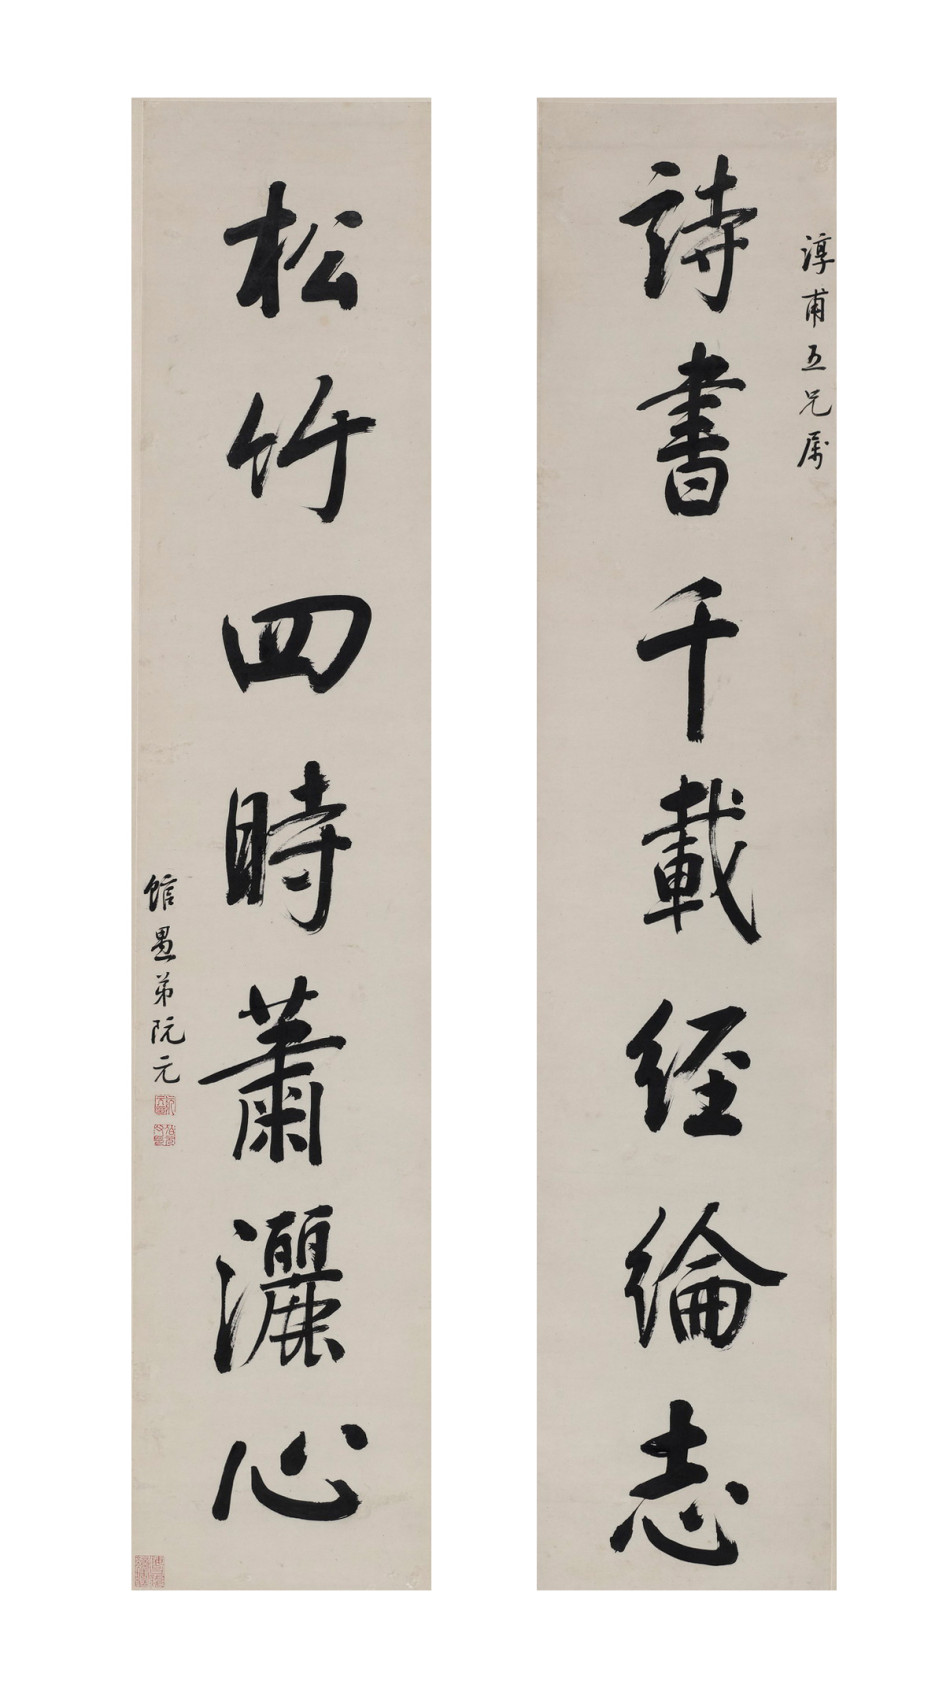 淳甫五兄属
詩書千載經綸志
松竹四時蕭灑心
館愚弟阮元